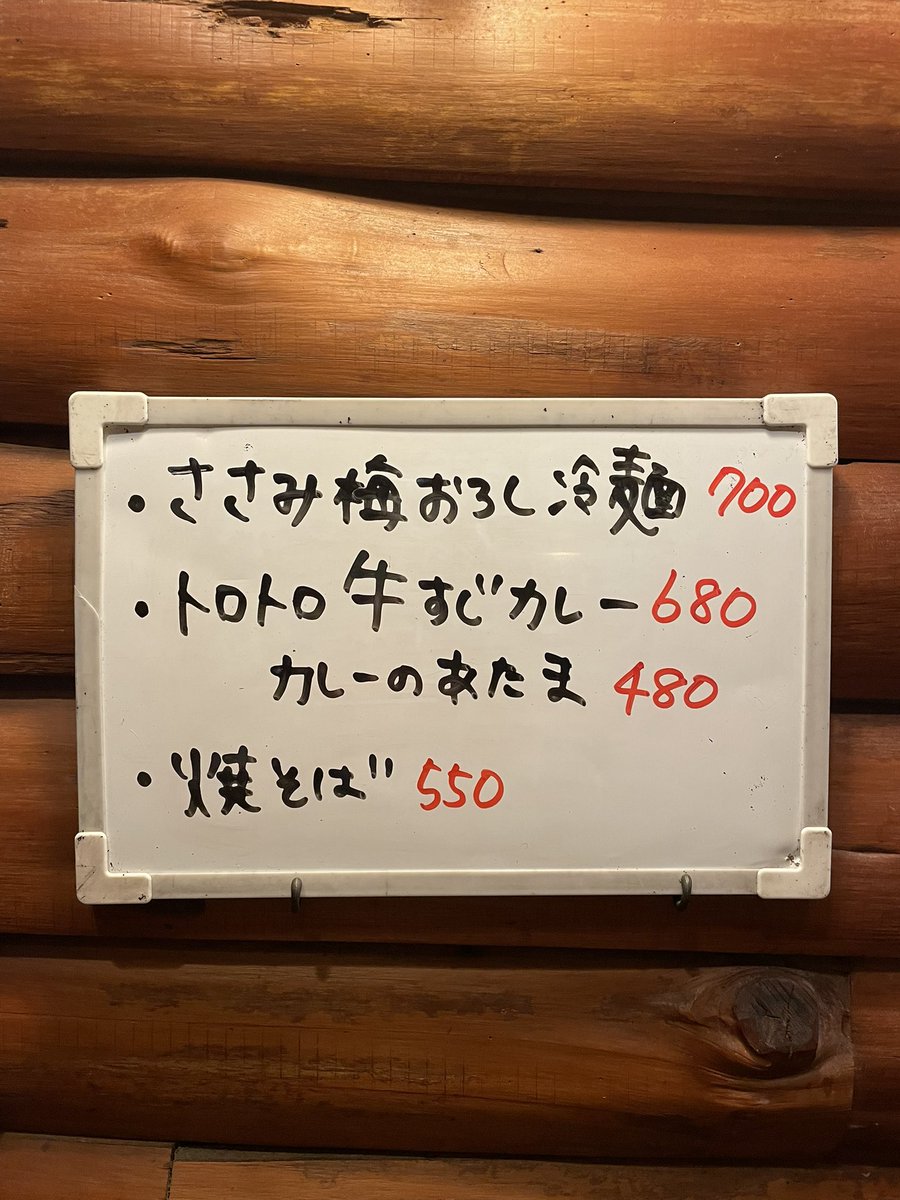 ・ささみ梅おろし冷麺 700
・トロトロ牛すじカレー 680
カレーのあたま 480
・焼そば 550